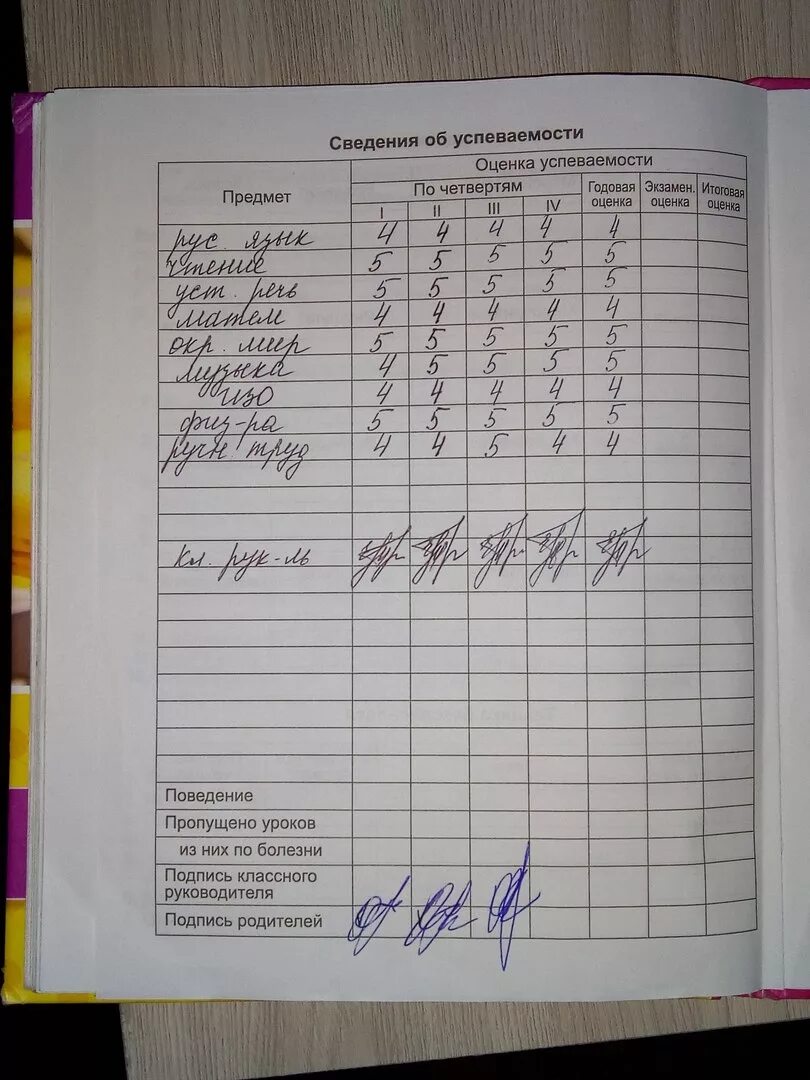 Сведения об успеваемости
Предмет
Оценка успеваемости
По четвертям Годовая оценка Экзамен. оценка Итоговая оценка
I II III IV
рус. язык 4 4 4 4 4
чтение 5 5 5 5 5
уст. речь 5 5 5 5 5
матем 4 4 4 4 4
окр. мир 5 5 5 5 5
музыка 4 5 5 5 5
ИЗО 4 4 4 4 4
физ-ра 5 5 5 5 5
ручн. труд 4 4 5 4 4
кл. рук-ль
Поведение
Пропущено уроков
из них по болезни
Подпись классного
руководителя
Подпись родителей